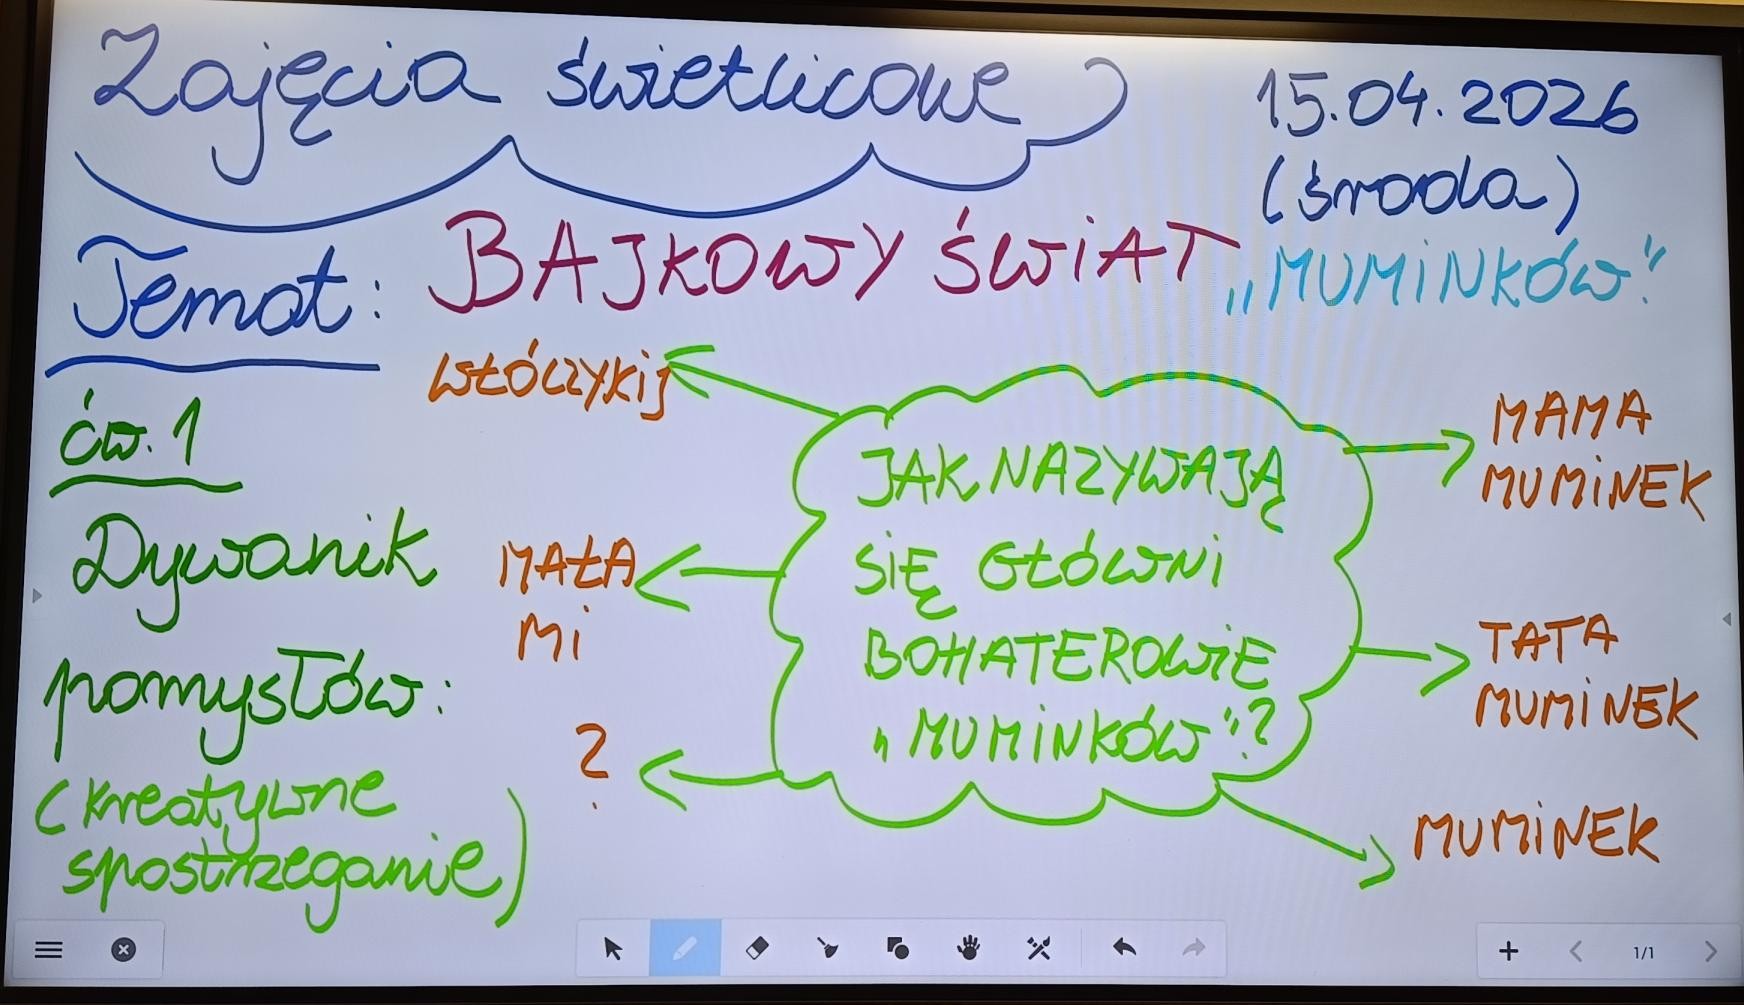 Zajęcia świetlicowe
15.04.2026
(środa)
Temat: BAJKOWY ŚWIAT „MUMINKÓW"
ćw. 1
Dywanik
pomysłów:
(kreatywne
spostrzeganie)
WŁÓCZYKIJ
MAŁA
MI
?
JAK NAZYWAJĄ
SIĘ GŁÓWNI
BOHATEROWIE
„MUMINKÓW"?
MAMA
MUMINEK
TATA
MUMINEK
MUMINEK
1/1